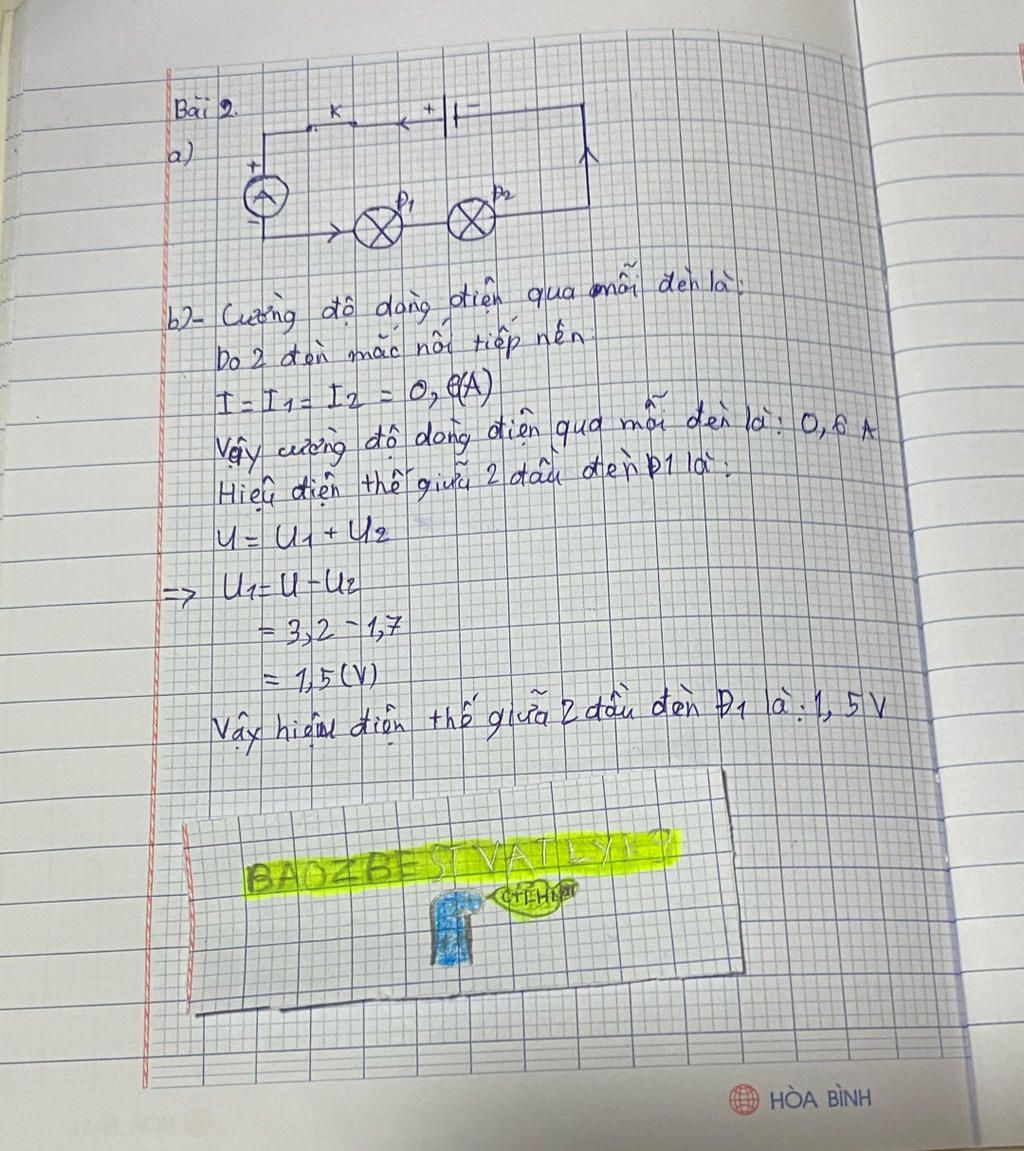 Bài 2.
a)
K + -
+
A
-
Đ1 Đ2
b)- Cường độ dòng điện qua mỗi đèn là:
Do 2 đèn mắc nối tiếp nên:
I = I1 = I2 = 0,6(A)
Vậy cường độ dòng điện qua mỗi đèn là: 0,6 A
Hiệu điện thế giữa 2 đầu đèn Đ1 là:
U = U1 + U2
=> U1 = U - U2
= 3,2 - 1,7
= 1,5 (V)
Vậy hiệu điện thế giữa 2 đầu đèn Đ1 là: 1,5 V
BAOZBEST VATLYK9
HÒA BÌNH